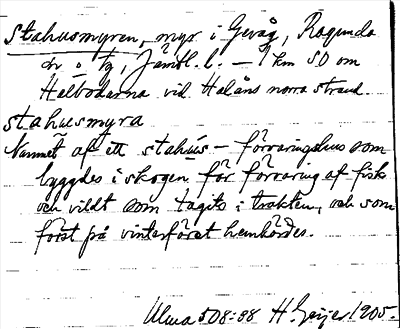 Stahusmyren, myr i Gevåg, Ragunda
sn o. tg, Jämtl. l. — 1 km SO om
Halbodarna vid Halåns norra strand.
stahusmyra
Namnet af ett stahús – förvaringshus som
byggdes i skogen för förvaring af fisk
och vildt som tagits i trakten, och som
först på vinterföret hemkördes.
Ulma 508:88 H. Geijer 1905.